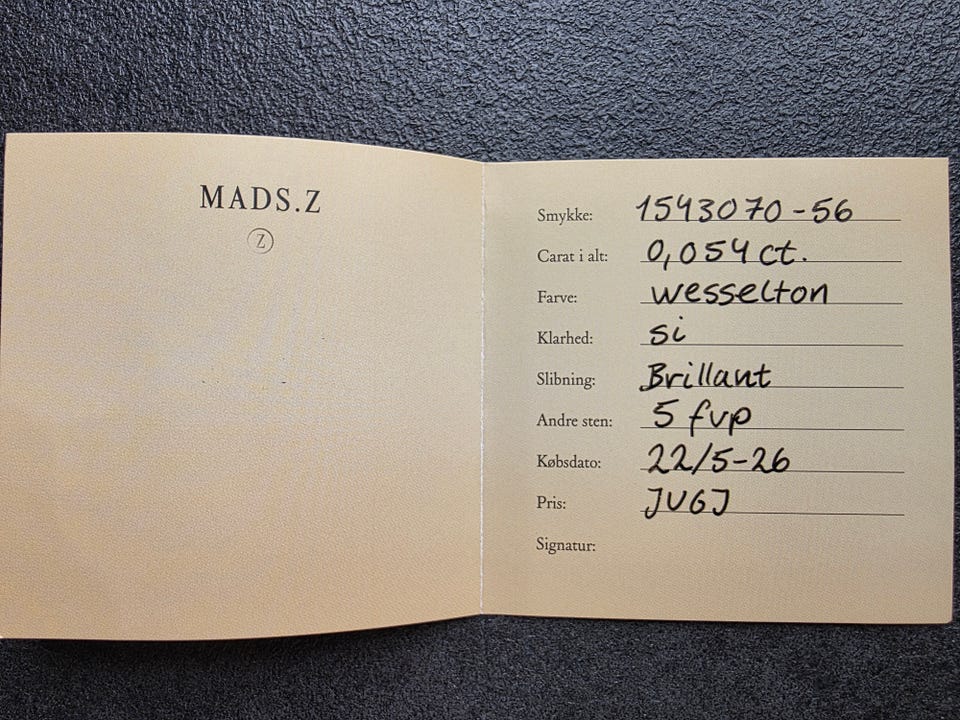 MADS.Z
Z
Smykke: 1543070-56
Carat i alt: 0,054 ct.
Farve: wesselton
Klarhed: si
Slibning: Brillant
Andre sten: 5 fvp
Købsdato: 22/5-26
Pris: JUGJ
Signatur: